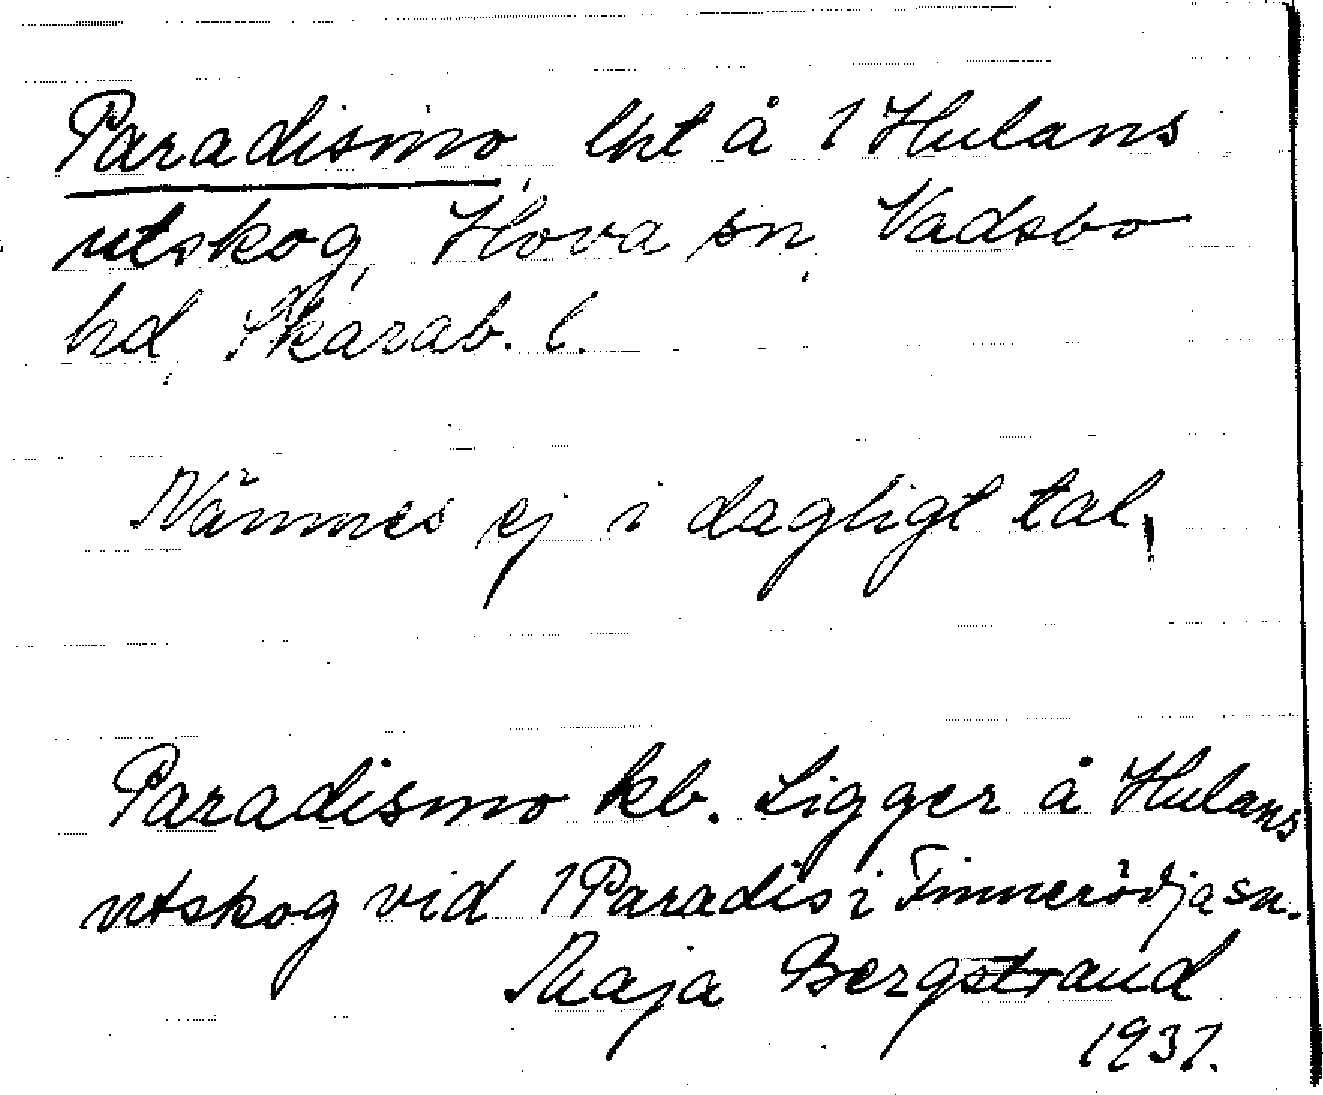 Paradismo, lht å 1 Hulans
utskog, Hova sn, Vadsbo
hd, Skarab. l.
Nämnes ej i dagligt tal.
Paradismo kb. Ligger å Hulans
utskog vid 1 Paradis i Finnerödja sn.
Maja Bergstrand
1937.